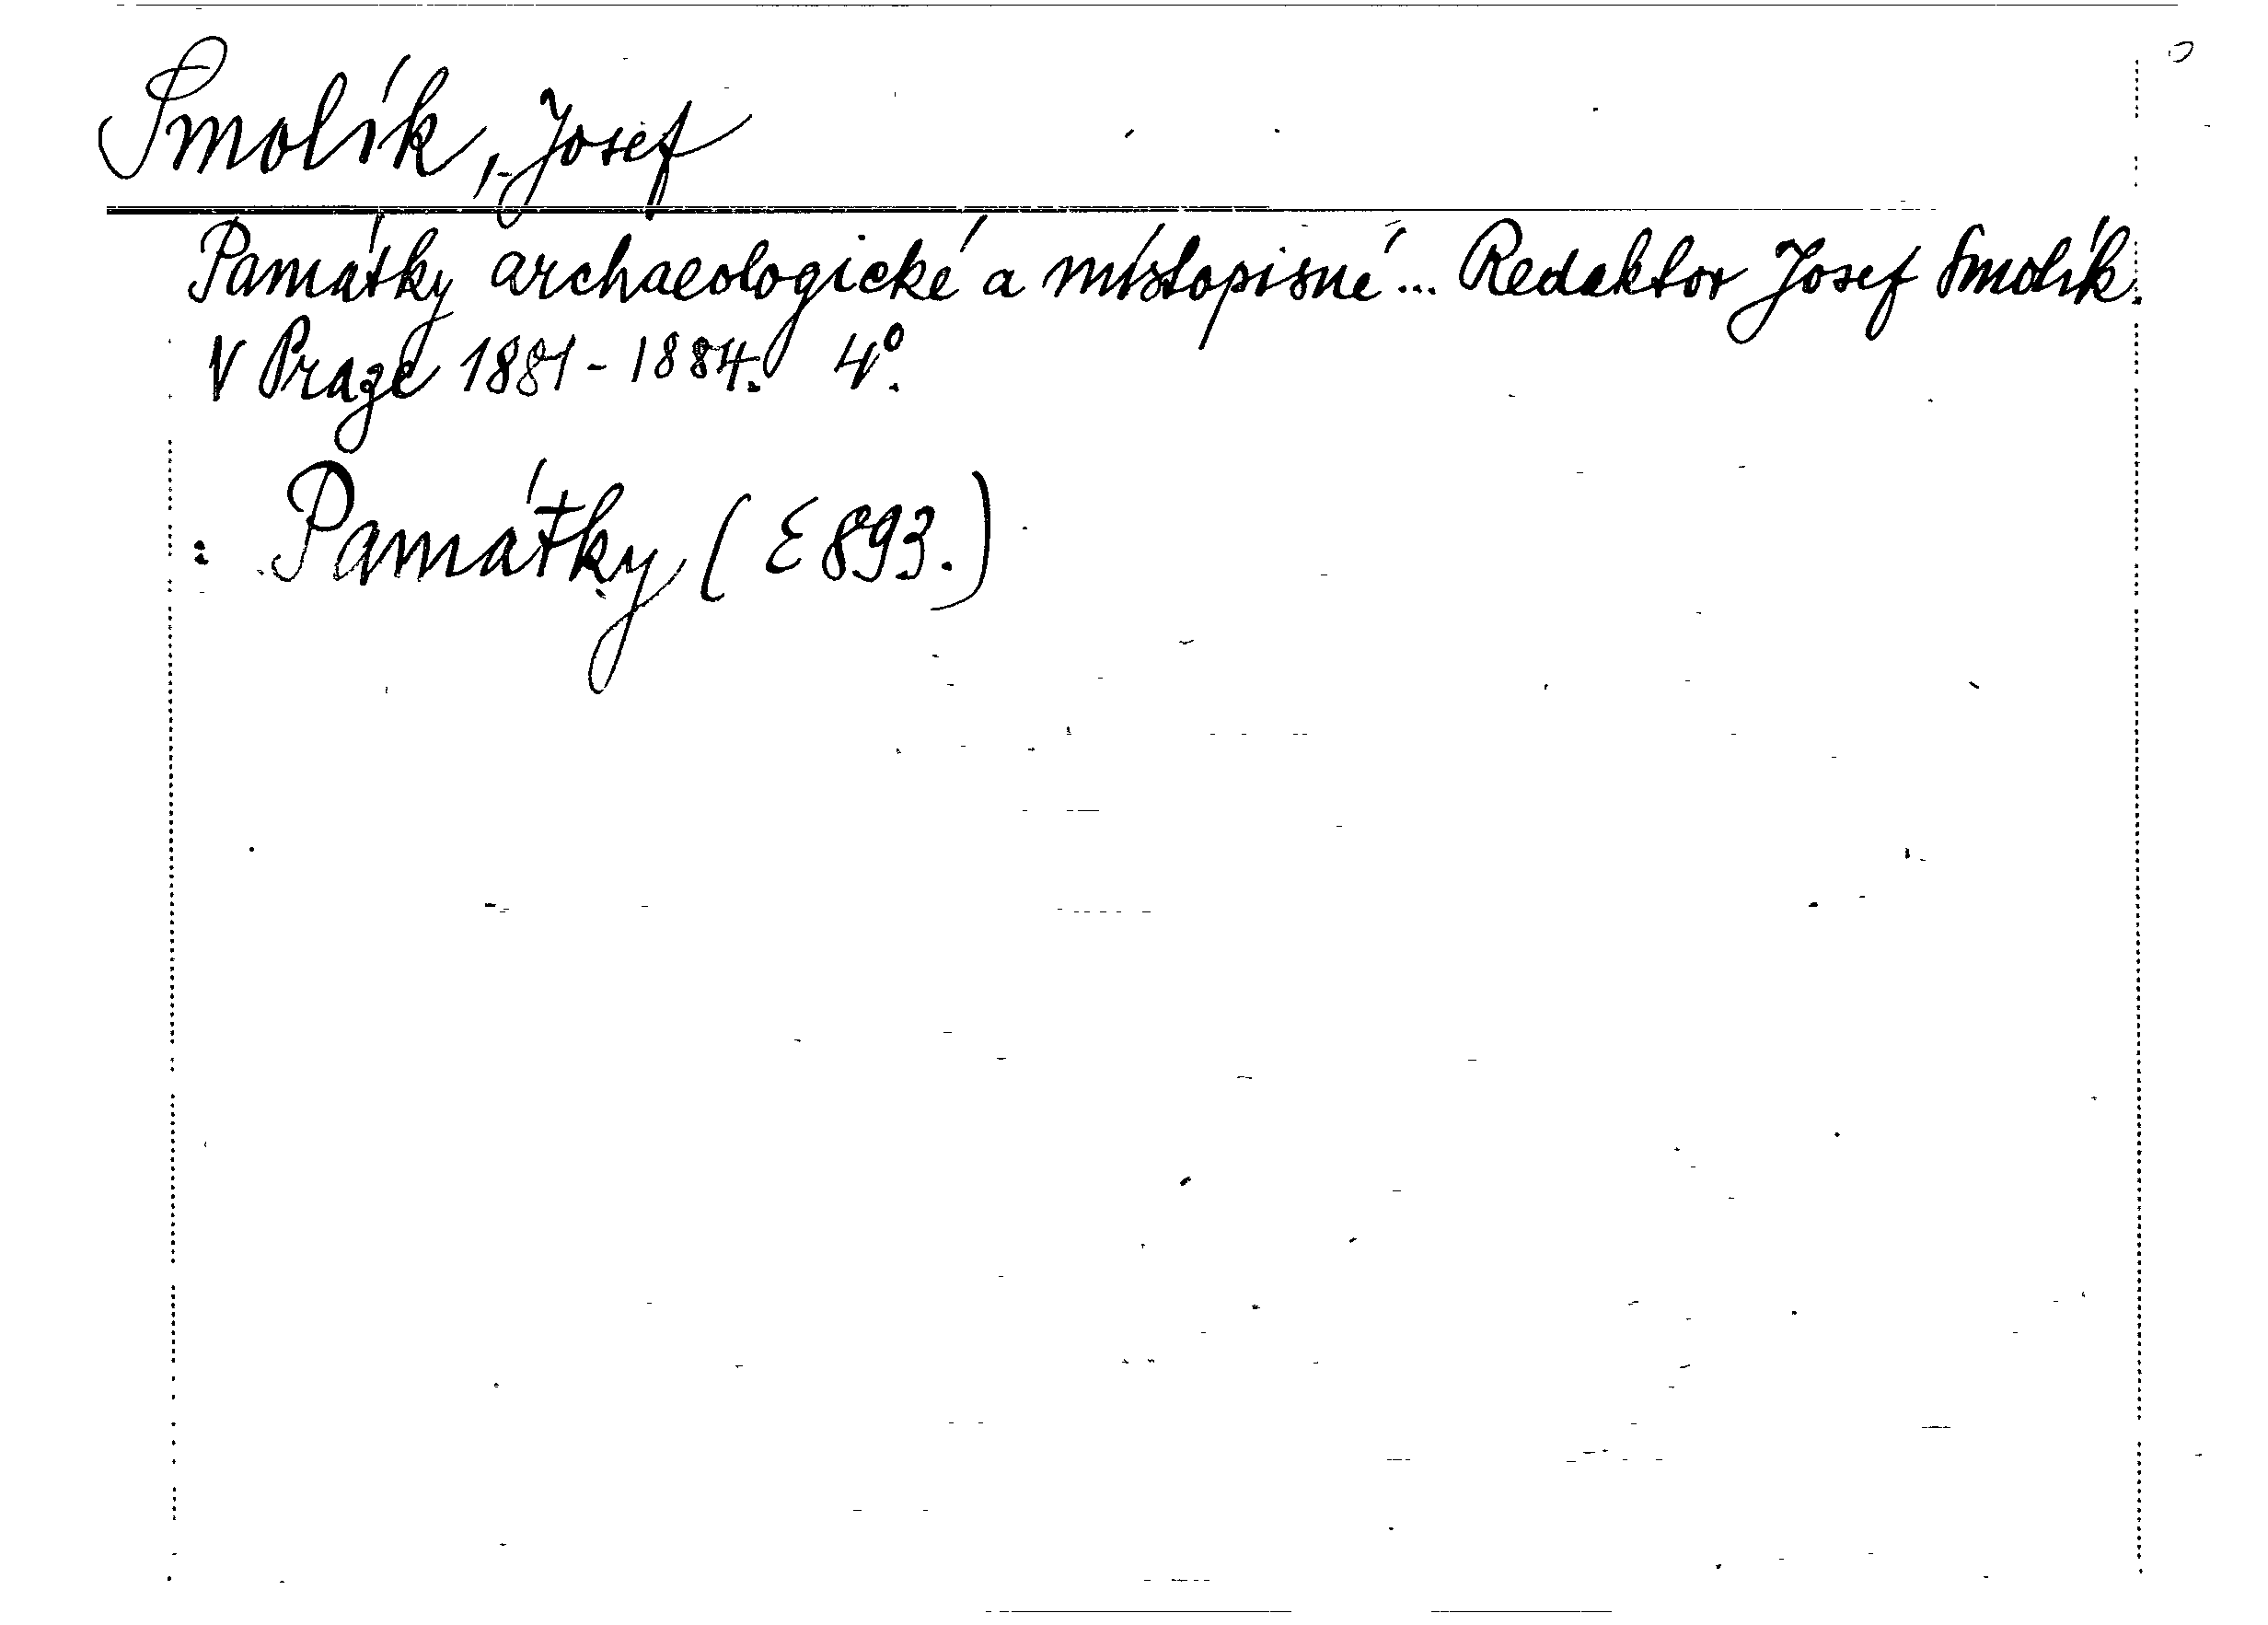 Smolík, Josef
Památky archaeologické a místopisné... Redaktor Josef Smolík.
V Praze 1881-1884. 4°.
: Památky (E 893.)